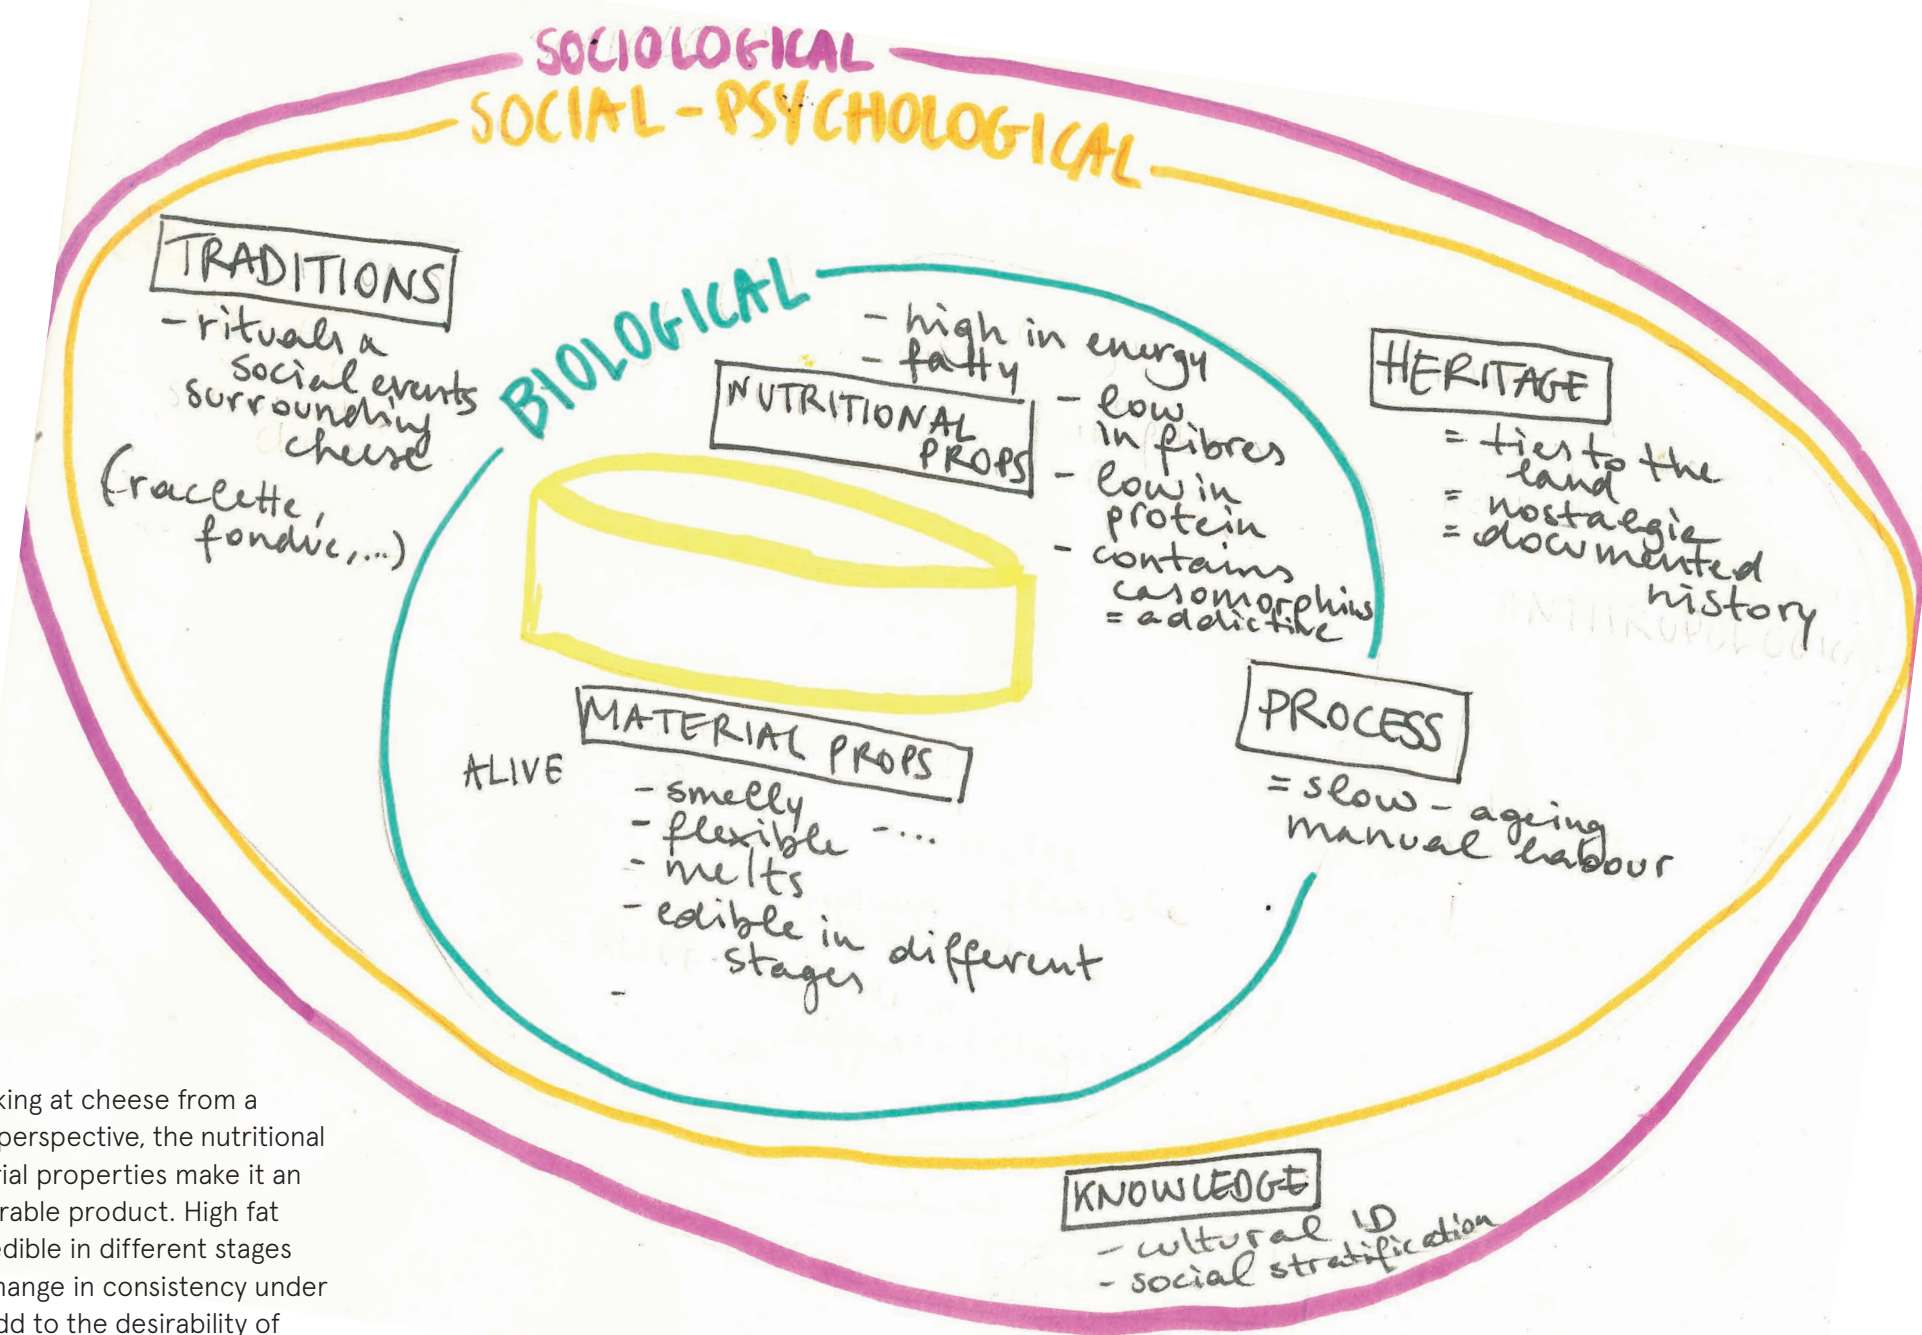 SOCIOLOGICAL
SOCIAL-PSYCHOLOGICAL
TRADITIONS
- rituals &
social events
surrounding
cheese
(raclette,
fondue,...)
BIOLOGICAL
- high in energy
- fatty
NUTRITIONAL
PROPS
- low
in fibres
- low in
protein
- contains
casomorphins
= addictive
HERITAGE
= ties to the
land
= nostalgie
= documented
history
MATERIAL PROPS
ALIVE
- smelly
- flexible -...
- melts
- edible in different
stages
-
PROCESS
= slow - ageing
manual labour
KNOWLEDGE
- cultural ID
- social stratification
king at cheese from a
perspective, the nutritional
rial properties make it an
rable product. High fat
edible in different stages
hange in consistency under
dd to the desirability of